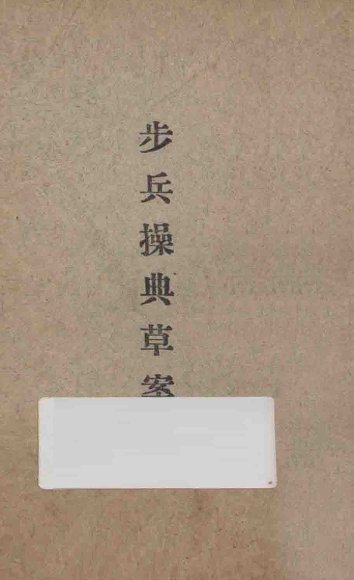 步兵操典草案